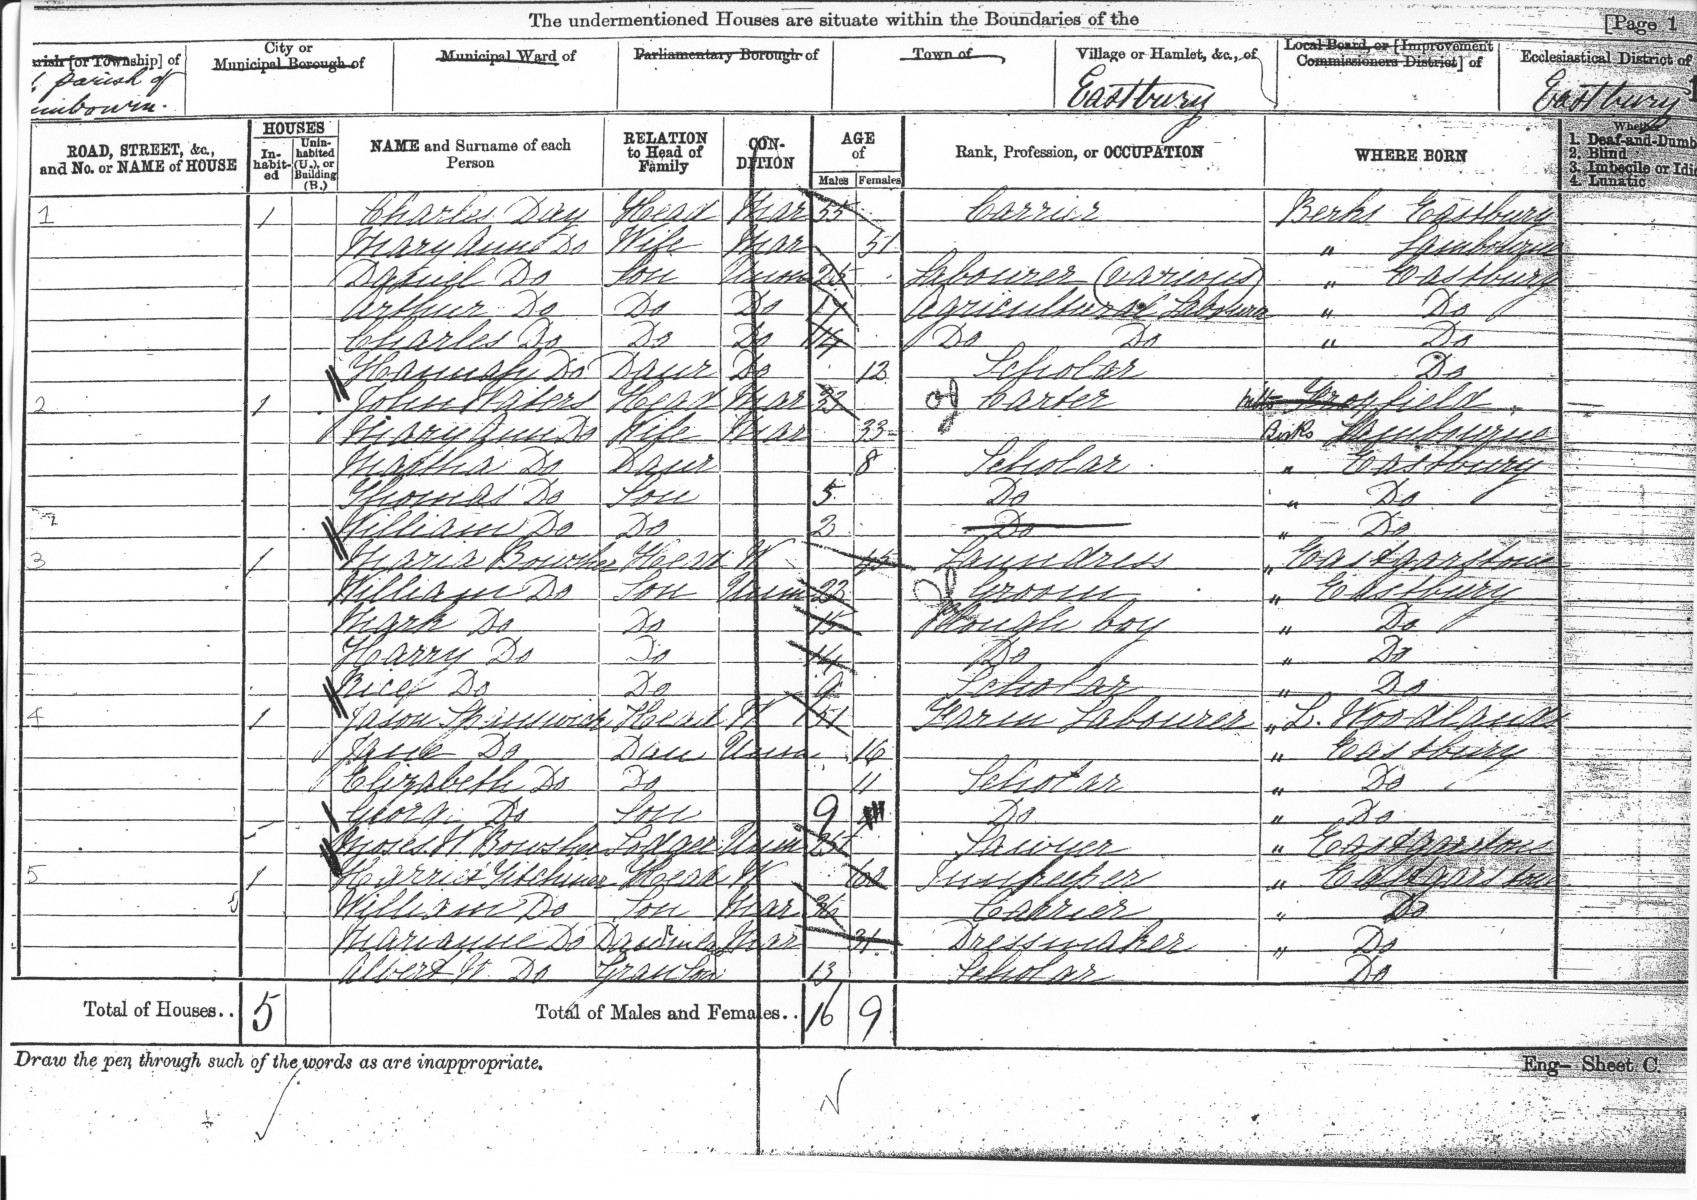 The undermentioned Houses are situate within the Boundaries of the [Page 1
arish [or Township] of City or Municipal Borough of Municipal Ward of Parliamentary Borough of Town of Village or Hamlet, &c., of Local Board, or [Improvement Commissioners District] of Ecclesiastical District of
Parish of
mbourn. Eastbury Eastbury
ROAD, STREET, &c., and No. or NAME of HOUSE HOUSES In-habit-ed Unin-habited (U.), or Building (B.) NAME and Surname of each Person RELATION to Head of Family CON-DITION AGE of Males Females Rank, Profession, or OCCUPATION WHERE BORN Whether 1. Deaf-and-Dumb 2. Blind 3. Imbecile or Idio 4. Lunatic
1 1 Charles Day Head Mar 55 Carrier Berks Eastbury
Mary Ann Do Wife Mar 51 " Lambourn
Daniel Do Son Unm 25 Labourer (various) " Eastbury
Arthur Do Do Do 17 Agricultural Labourer " Do
Charles Do Do Do 14 Do Do " Do
Hannah Do Daur Do 12 Scholar Do
2 1 John Waters Head Mar 33 Carter field
Mary Ann Do Wife Mar 33 Berks Lambourne
Martha Do Daur 8 Scholar " Eastbury
Thomas Do Son 5 Do " Do
William Do Do 2 Do " Do
3 1 Maria Bowsher Head W 45 Laundress " Eastgarstone
William Do Son Unm 22 Groom " Eastbury
Mark Do Do 15 Plough boy " Do
Harry Do Do 14 Do " Do
Do Do 9 Scholar " Do
4 1 Jason Head W 51 Farm Labourer " L. Woodlands
Jane Do Dau Unm 16 " Eastbury
Elizabeth Do Do 11 Scholar " Do
George Do Son 9 Do " Do
Moses W Bowsher Lodger Unm Sawyer " Eastgarstone
5 1 Harriet Head W Innkeeper " Eastgarstone
William Do Son Mar 36 Carrier " Do
Marianne Do Mar 31 Dressmaker " Do
Albert W. Do GranSon 13 Scholar Do
Total of Houses.. 5 Total of Males and Females.. 16 9
Draw the pen through such of the words as are inappropriate. Eng— Sheet C.